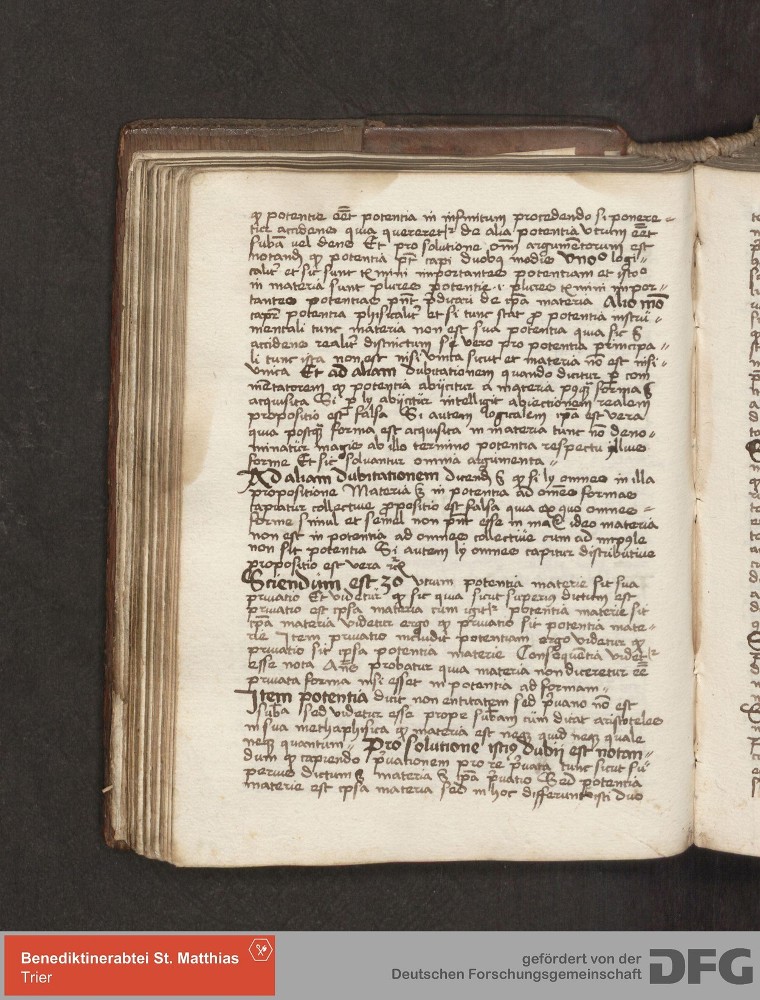 ꝙ potentie eēt potentia in infinitum procedendo si ponere⸗
tur accidens quia quereret᷑ de alia potentia vtrum eēt
suba᷑ vel dens Et pro solutione om̄i argumentorum est
notand ꝙ potentia pn̄t capi duobꝯ modis vnoº logi⸗
calit᷑ et sic sunt t᷑mini importantes potentiam et istoº
in materia sunt plures potentie .i. plures t᷑mini impor⸗
tantes potentias pn̄t p̄dicari de ip̄a materia Alio mō
capit᷑ potentia phisicalit᷑ et si tunc stat ꝓ potentia instru⸗
mentali tunc materia non est sua potentia quia sic ē
accidens realit᷑ distinctum si vero pro potentia principa⸗
li tunc ista non est nisi vnita sicut et materia nō est nisi⸗
vnica Et ad aliam dubitationem quando dicitur ꝑ com
mētatorem ꝙ potentia abijcitur a materia postꝙ̄ forma ē
acquisita Si ꝑ ly abijcitur intelligit᷑ abiectionem realem
propositio est falsa Si autem logicalem ip̄a est vera
quia postꝙ̄ forma est acquisita in materia tunc nō deno⸗
minatur magis ab illo termino potentia respectu illius
forme Et sic soluantur omnia argumenta⸗
Ad aliam dubitationem dicend ē ꝙ si ly omnes in illa
propositione Materia ē in potentia ad om̄es formas
capiatur collectiue ꝓpositio est falsa quia ex quo omnes⸗
forme simul et semel non pn̄t esse in ma᷑ ideo materia
non est in potentia ad omnes collectiue cum ad impole
non sit potentia Si autem ly omnes capitur distributiue
propositio est vera ꝛc̄
Sciendum est 3º vtrum potentia materie sit sua
priuatio Et videtur ꝙ sic quia sicut superius dictum est
priuatio est ip̄sa materia cum igit᷑ potentia materie sit
ip̄a materia videtur ergo ꝙ priuatio sit potentia mate⸗
rie Item priuatio includit potentiam ergo videtur ꝙ
priuatio sit ip̄sa potentia materie Consequentia videt᷑
esse nota An̄s probatur quia materia non diceretur eē
priuata forma nisi esset in potentia ad formam⸗
Item potentia dicit non entitatem sed p̄uatio nō est
suba᷑ sed videtur esse prope subam cum dicat aristoteles
in sua methaphisica ꝙ materia est neqꝫ quid neqꝫ quale
neqꝫ quantum⸗ Pro solutione istiꝯ dubij est notan⸗
dum ꝙ capiendo p̄uationem pro re p̄uata tunc sicut su⸗
perius dictum ē materia ē ip̄a p̄uatio Sed potentia
materie est ip̄sa materia sed in hoc differunt isti duo
Benediktinerabtei St. Matthias
Trier
gefördert von der
Deutschen Forschungsgemeinschaft
DFG